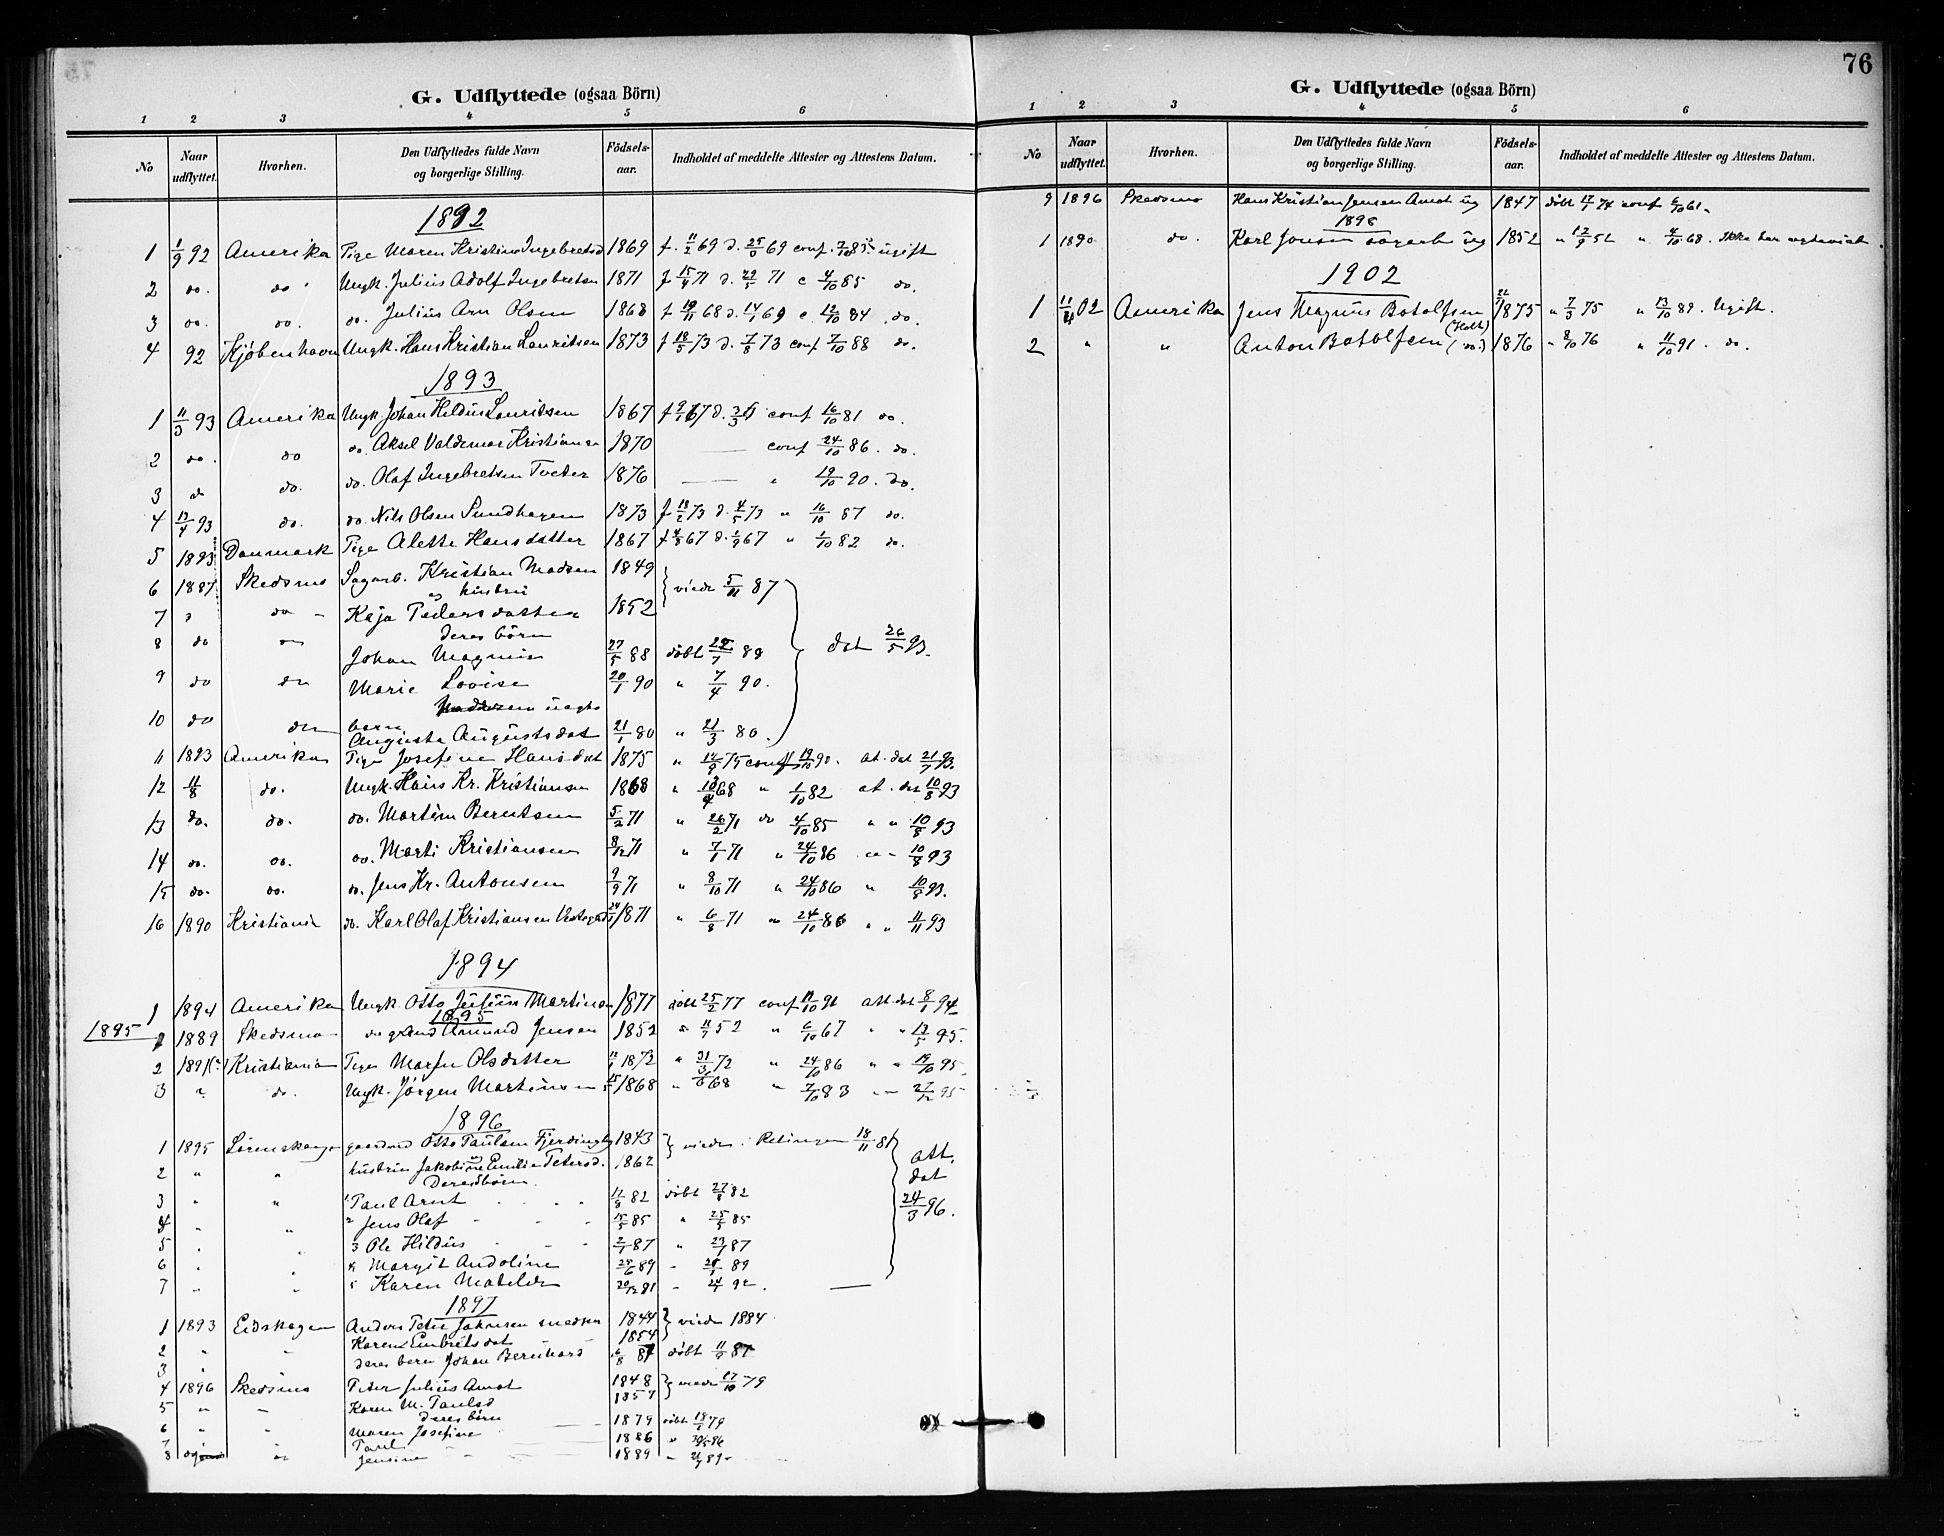 G. Udflyttede (ogsaa Börn)
1 2 3 4 5 6
No Naar udflyttet. Hvorhen. Den Udflyttedes fulde Navn og borgerlige Stilling. Födselsaar. Indholdet af meddelte Attester og Attestens Datum.
1892
1 1/9 92 Amerika Pige Maren Kristine Ingebretsd 1869 f. 11/2 69 d. 69 conf. 85 ugift
2 do. do Ungk. Julius Adolf Ingebretsen 1871 f 71 d. 71 c 4/10 85 do.
3 do. do. do. Julius Arn Olsen 1868 f 68 d. 69 c. 12/10 84 do.
4 92 Kjøbenhavn Ungk. Hans Kristian Lauritsen 1873 f 18/5 73 d. 7/8 73 conf 7/10 88 do.
1893
1 11/3 93 Amerika Ungk. Johan Hildus Lauritsen 1867 conf 16/10 81 do.
2 do. do do. Aksel Valdemar Kristiansen 1870 conf 24/10 86. do.
3 do do. do. Olaf Ingebretsen Tveter 1876 " 19/10 90. do.
4 13/4 93 do. do. Nils Olsen Sundhagen 1873 f 18/2 73 d. 4/5 73 " 16/10 87 do.
5 1893 Danmark Pige Alette Hansdatter 1867 f 4/8 67 d. 1/9 67 " 1/10 82 do.
6 1887 Skedsmo Sagarb. Kristian Madsen 1849 viede 5/11 87
og hustru
7 " do Kaja Pedersdatter 1852
deres börn
8 do do Johan Magnus 27/5 88 döbt 88 dat 26/5 93.
9 do do Marie Lovise 20/1 90 " 7/4 90.
uægte
10 do do barn Augusta Augustsdat 21/1 80 " 21/3 80.
11 1893 Amerika Pige Josefine Hansdat 1875 " 14/9 75 conf 19/10 90. at. dat 21/7 93.
12 11/8 do. Ungk. Hans Kr. Kristiansen 1868 " 68 " 1/10 82 at. dat 10/8 93
13 do. do. do. Martin Berntsen 5/2 71 " 26/2 71 do 4/10 85 " " 10/8 93
14 do. do. do. Marti Kristiansen 8/12 71 " 7/1 71 " 24/10 86 " " 10/8 93
15 do. do. do. Jens Kr. Antonsen 9/9 71 " 8/10 71 " 24/10 86 " 10/8 93.
16 1890 Kristiania do. Karl Olaf Kristiansen 1871 " 6/8 71 " 24/10 86 " " 11/11 93
1894
1 1894 Amerika Ungk. Otto Julius Martinsen 1877 döbt 25/2 77 conf 91 att. dat 8/1 94
1895
1895 1889 Skedsmo Amund Jensen 1852 " 11/7 52 " 6/10 67 " " 13/5 95.
2 Kristiania Pige Maren Olsdatter 1872 " 31/3 72 " 24/10 86 " " 19/10 95.
3 " do. Ungk. Jörgen Martinsen 1868 " 68 " 7/10 83 " 27/12 95
1896
1 1895 Lörenskogen gaardmd Otto Paulsen Fjerdingby 1843 viede i Rælingen 18/11 81
2 " " hustru Jakobine Emilie Petersd. 1862 att.
Deres börn. dat
3 " " 1 Paul Arnt 82 döbt 27/8 82 24/3 96.
4 " " 2 Jens Olaf 15/5 85 " 25/5 85
5 " " 3 Ole Hildus 2/1 87 " 23/1 87
6 " " 4 Margit Andoline 89 " 89
7 " " 5 Karen Matilde " 92.
1897
1 1893 Eidskogen Anders Peter Johansen 1844 viede 1884
2 " " Karen Embretsdat 1854
3 " deres barn Johan Bernhard 6/8 87 döbt 11/9 87
4 1896 Skedsmo Peter Julius Amot 1848 viede 17/10 79
5 " " Karen M. Paulsd 1857
deres börn
6 " " Maren Josefine 1879 döbt 79
7 Paul 1886 " 86
8 Jensine 1889 " 89
76
G. Udflyttede (ogsaa Börn)
1 2 3 4 5 6
No Naar udflyttet. Hvorhen. Den Udflyttedes fulde Navn og borgerlige Stilling. Födselsaar. Indholdet af meddelte Attester og Attestens Datum.
9 1896 Skedsmo Hans Kristian Jensen Amot 1847 döbt conf 61
1898
1 1890 do. Karl Jonsen sagarb 1852 " 12/9 52 " 4/10 68. Ikke
1902
1 11/4 02 Amerika Jens Magnus Botolfsen (Holt) 1875 " 7/3 75 " 13/10 89. Ugift.
2 " " Anton Botolfsen (do.) 1876 " 8/10 76 " 11/10 91. do.